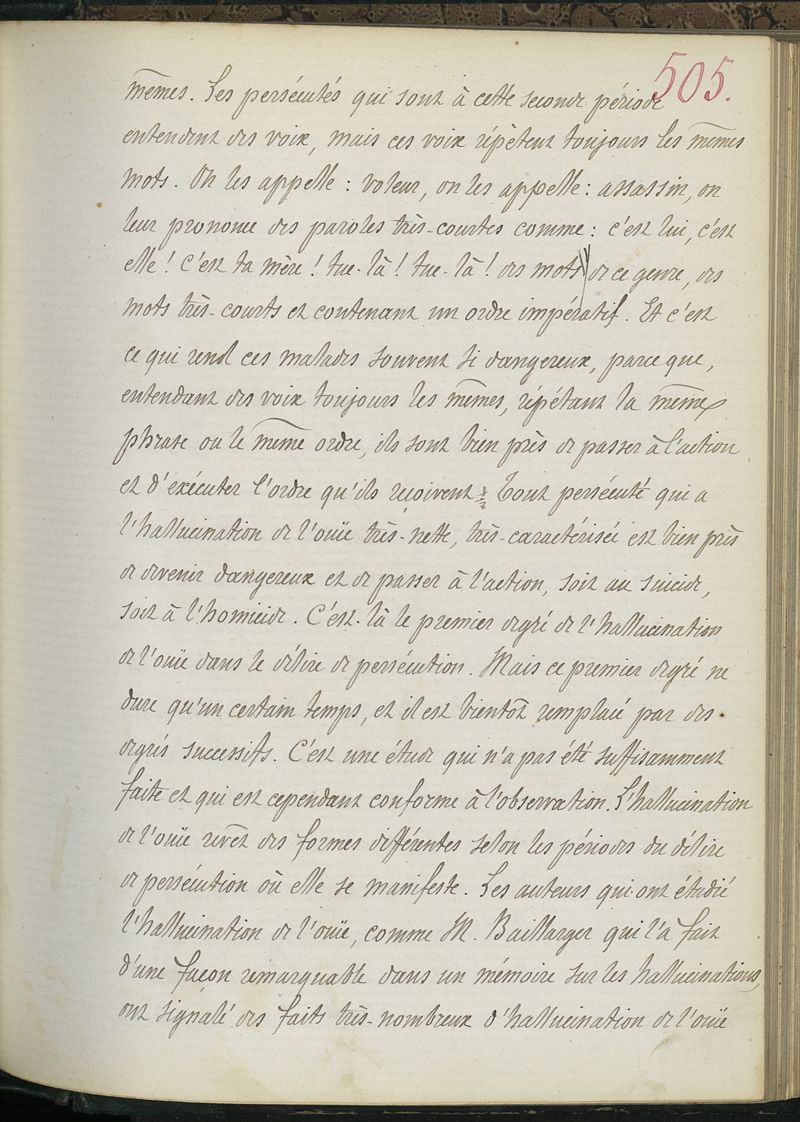 505.
mêmes. Les persécutés qui sont à cette seconde période
entendent des voix, mais ces voix répètent toujours les mêmes
mots. On les appelle : voleur, on les appelle : assassin, on
leur prononce des paroles très-courtes comme : c'est lui, c'est
elle ! C'est ta mère ! tue-là ! tue-là ! des mots de ce genre, des
mots très-courts et contenant un ordre impératif. Et c'est
ce qui rend ces malades souvent si dangereux, parce que,
entendant des voix toujours les mêmes, répétant la même
phrase ou le même ordre, ils sont bien près de passer à l'action
et d'exécuter l'ordre qu'ils reçoivent. Tout persécuté qui a
l'hallucination de l'ouïe très-nette, très-caractérisée est bien près
de devenir dangereux et de passer à l'action, soit au suicide,
soit à l'homicide. C'est-là le premier degré de l'hallucination
de l'ouïe dans le délire de persécution. Mais ce premier degré ne
dure qu'un certain temps, et il est bientôt remplacé par des
degrés successifs. C'est une étude qui n'a pas été suffisamment
faite et qui est cependant conforme à l'observation. L'hallucination
de l'ouïe revêt des formes différentes selon les périodes du délire
de persécution où elle se manifeste. Les auteurs qui ont étudié
l'hallucination de l'ouïe, comme M. Baillarger qui l'a fait
d'une façon remarquable dans un mémoire sur les hallucinations,
ont signalé des faits très-nombreux d'hallucination de l'ouïe